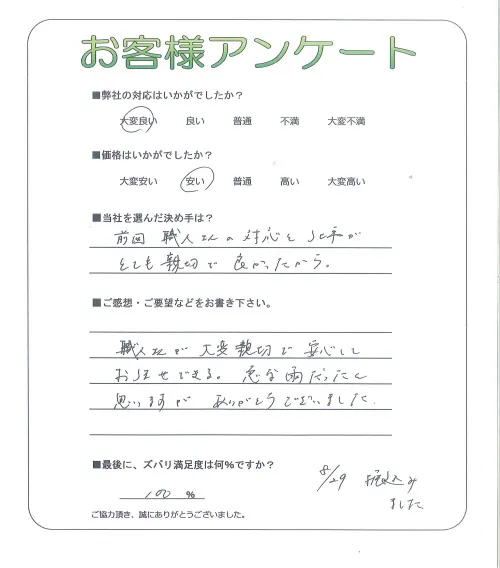 お客様アンケート
■弊社の対応はいかがでしたか？
大変良い 良い 普通 不満 大変不満
■価格はいかがでしたか？
大変安い 安い 普通 高い 大変高い
■当社を選んだ決め手は？
前回 職人さんの対応と 仕事が
とても親切で 良かったから。
■ご感想・ご要望などをお書き下さい。
職人さんが 大変親切で 安心して
お任せできる。 急な雨だったと
思いますが ありがとうございました。
■最後に、ズバリ満足度は何%ですか？
100 %
8/29 振込み
ました
ご協力頂き、誠にありがとうございました。